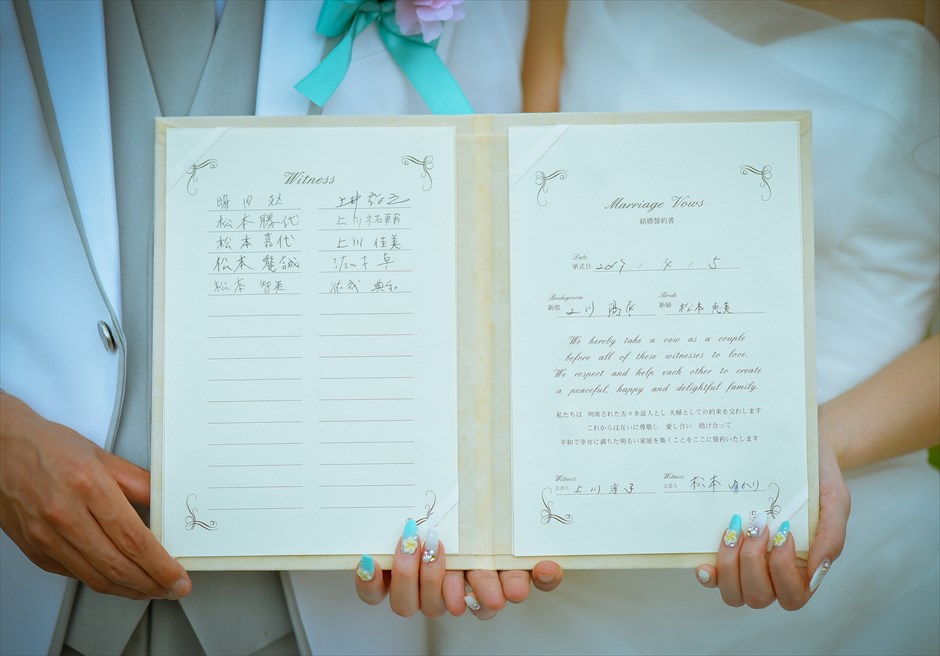 Witness
松本勝代 上川祐輔
松本喜代 上川佳美
松本
松本智美
Marriage Vows
結婚誓約書
Date
挙式日 2017 / 4 / 5
Bridegroom Bride
新郎 上川 新婦 松本恵美
We hereby take a vow as a couple
before all of these witnesses to love.
We respect and help each other to create
a peaceful, happy and delightful family.
私たちは 列席された方々を証人とし 夫婦としての約束を交わします
これからは互いに尊敬し 愛し合い 助け合って
平和で幸せに満ちた明るい家庭を築くことをここに誓約いたします
Witness Witness
立会人 上川淳子 立会人 松本